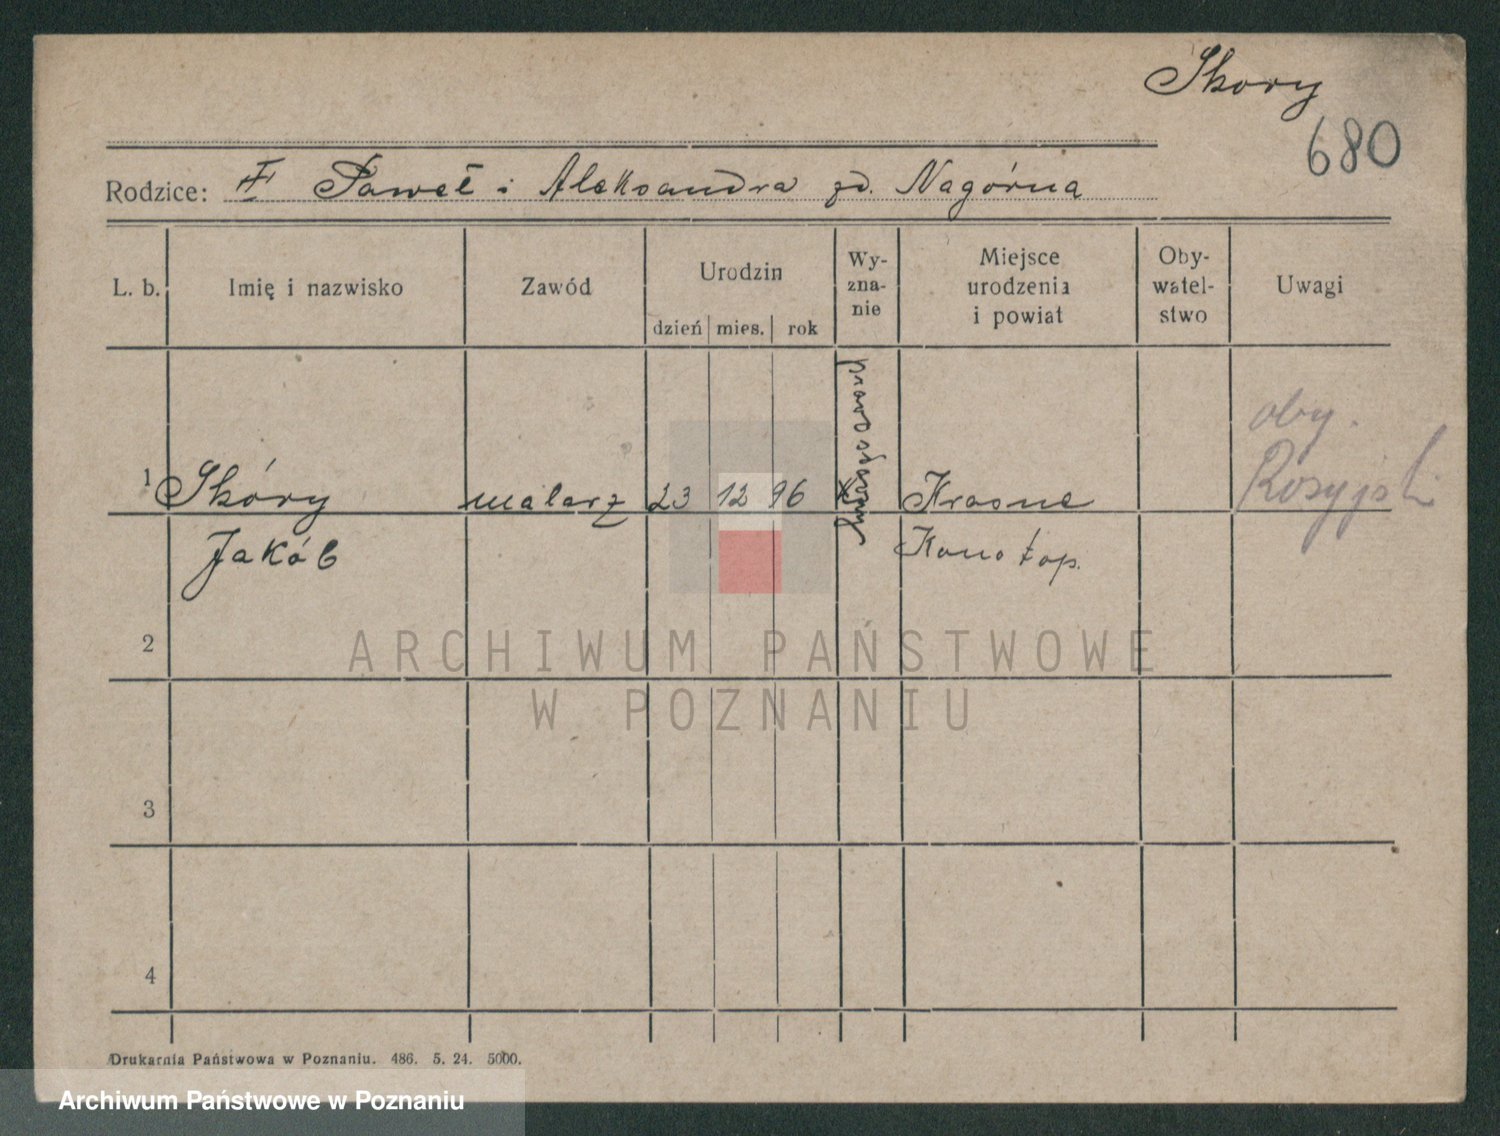 Skory
680
Rodzice: Paweł i Aleksandra zd. Nagórna
L. b. Imię i nazwisko Zawód Urodzin dzień mies. rok Wy-zna-nie Miejsce urodzenia i powiat Oby-watel-stwo Uwagi
1 Skóry malarz 23 12 96 prawosławny Krasne
Jakób Konotop.
oby.
Rosyjski
2
3
4
Drukarnia Państwowa w Poznaniu. 486. 5. 24. 5000.
ARCHIWUM PAŃSTWOWE
W POZNANIU
Archiwum Państwowe w Poznaniu